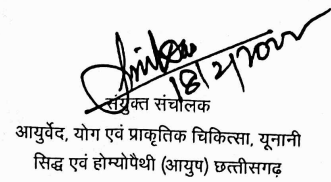 18/2/2022
संयुक्त संचालक
आयुर्वेद, योग एवं प्राकृतिक चिकित्सा, यूनानी
सिद्ध एवं होम्योपैथी (आयुष) छत्तीसगढ़